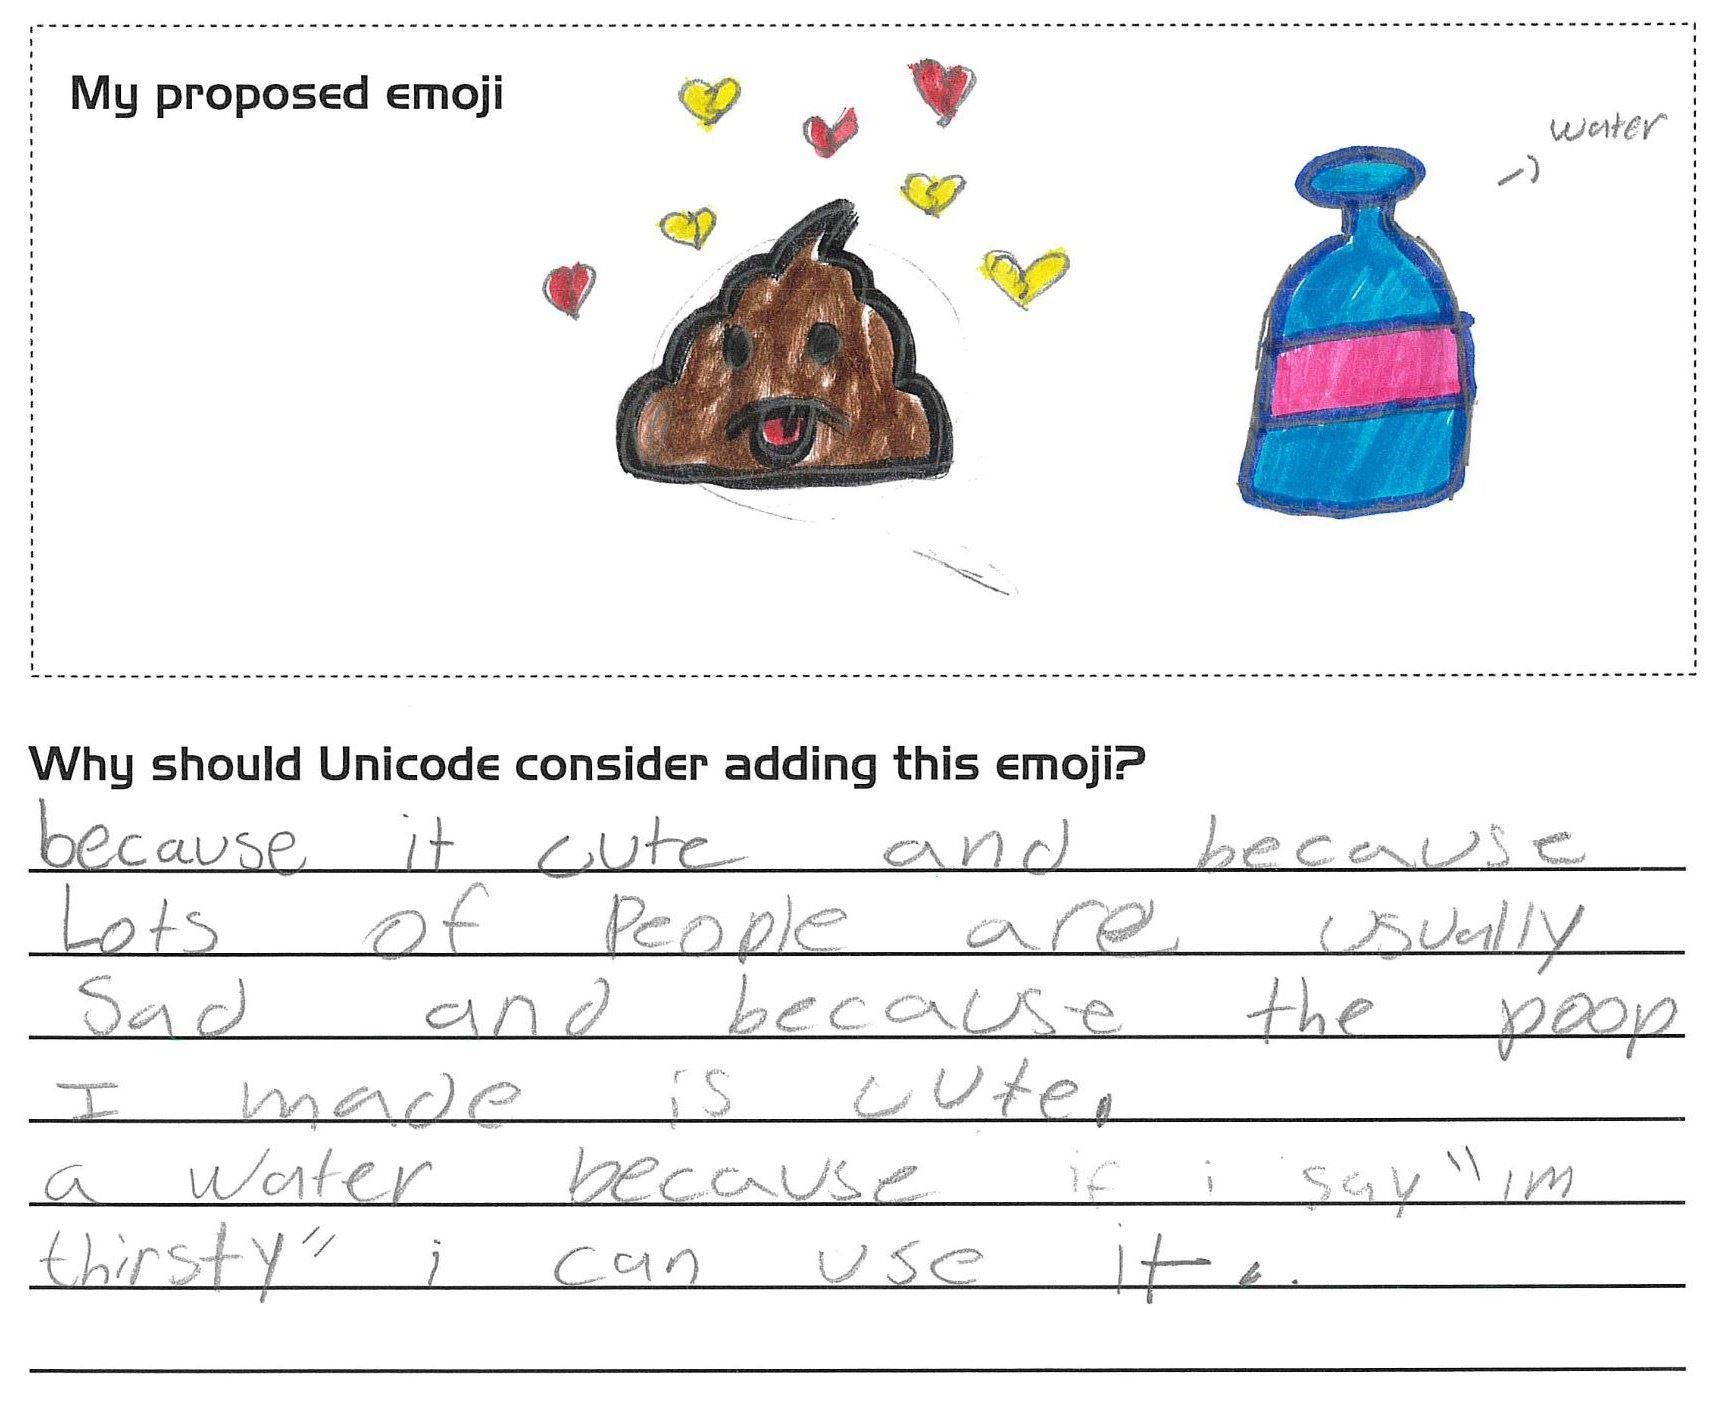 My proposed emoji
water
Why should Unicode consider adding this emoji?
because it cute and because
Lots of People are usually
Sad and because the poop
I made is cute.
a water because if i say "im
thirsty" i can use it..